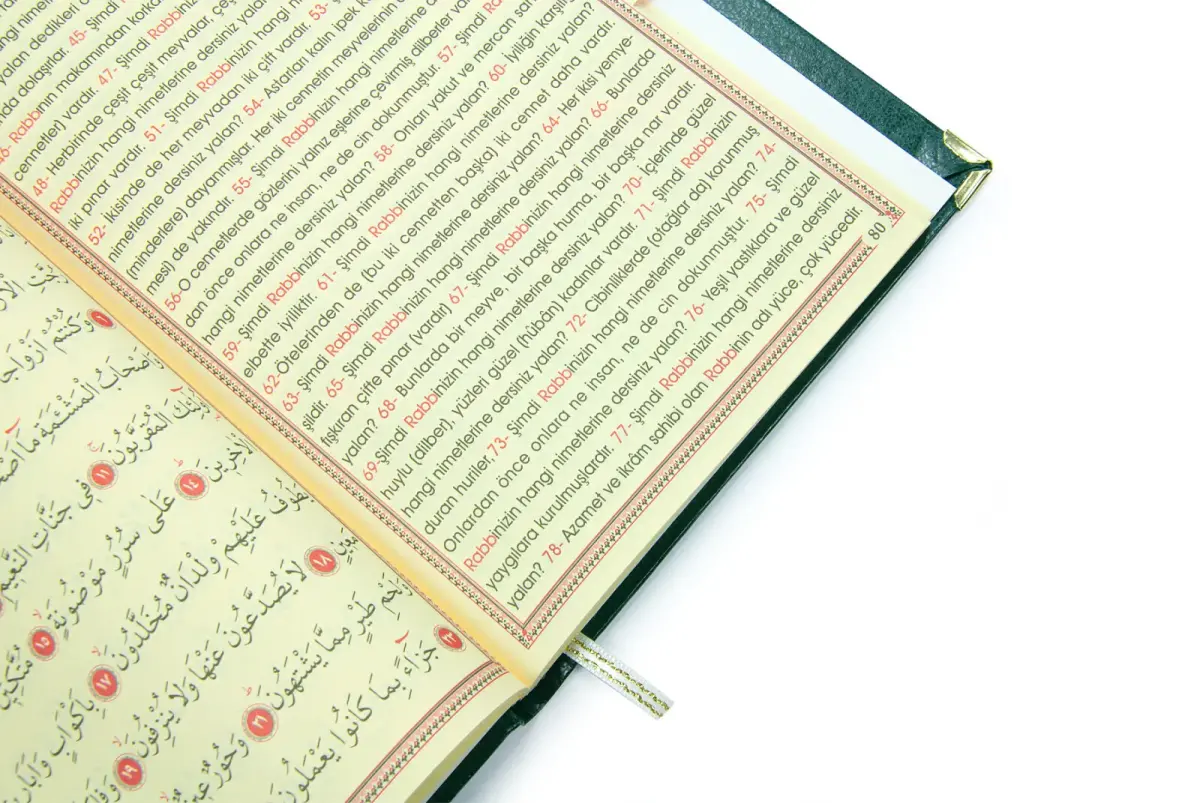 yalan dedikleri
da dolaşırlar. 45- Şimdi
Rabbinin makamından
cennet(ler) vardır. 47- Şimdi Rabbinizin hangi
48- Herbirinde çeşit çeşit meyvalar,
Rabbinizin hangi nimetlerine dersiniz
iki pınar vardır. 51- Şimdi Rabbinizin hangi
52- İkisinde de her meyvadan iki çift vardır. 53-
nimetlerine dersiniz yalan? 54- Astarları kalın ipek
(minderlere) dayanmışlar. Her iki cennetin meyvelerinin
mesi) de yakındır. 55- Şimdi Rabbinizin hangi nimetlerine
56-O cennetlerde gözlerini yalnız eşlerine çevirmiş dilberler
dan önce onlara ne insan, ne de cin dokunmuştur. 57- Şimdi
hangi nimetlerine dersiniz yalan? 58- Onlar yakut ve mercan
59- Şimdi Rabbinizin hangi nimetlerine dersiniz yalan? 60- İyiliğin
elbette iyiliktir. 61- Şimdi Rabbinizin hangi nimetlerine dersiniz yalan?
62- Ötelerinden de (bu iki cennetten başka) iki cennet daha vardır.
63- Şimdi Rabbinizin hangi nimetlerine dersiniz yalan? 64- Her ikisi yemye-
şildir. 65- Şimdi Rabbinizin hangi nimetlerine dersiniz yalan? 66- Bunlarda
fışkıran çifte pınar (vardır) 67- Şimdi Rabbinizin hangi nimetlerine dersiniz
yalan? 68- Bunlarda bir meyve, bir başka hurma, bir başka nar vardır.
69-Şimdi Rabbinizin hangi nimetlerine dersiniz yalan? 70- İçlerinde güzel
huylu (dilber), yüzleri güzel (hûbân) kadınlar vardır. 71- Şimdi Rabbinizin
hangi nimetlerine dersiniz yalan? 72- Cibinliklerde (otağlar da) korunmuş
duran huriler, 73- Şimdi Rabbinizin hangi nimetlerine dersiniz yalan? 74-
Onlardan önce onlara ne insan, ne de cin dokunmuştur. 75- Şimdi
Rabbinizin hangi nimetlerine dersiniz yalan? 76- Yeşil yastıklara ve güzel
yaygılara kurulmuşlardır. 77- Şimdi Rabbinizin hangi nimetlerine dersiniz
yalan? 78- Azamet ve ikrâm sahibi olan Rabbinin adı yüce, çok yücedir.
90
وَكُنْتُمْ أَزْوَاجًا
الْمَشْـَٔمَةِ مَٓا
الْمُقَرَّبُونَ ١١ فِى جَنَّاتِ النَّعِيمِ
١٤ عَلٰى سُرُرٍ مَوْضُونَةٍ ١٥
عَلَيْهِمْ وِلْدَانٌ مُخَلَّدُونَ ١٧ بِأَكْوَابٍ
١٨ لَا يُصَدَّعُونَ عَنْهَا وَلَا يُنْزِفُونَ ١٩
طَيْرٍ مِمَّا يَشْتَهُونَ ٢١ وَحُورٌ عِينٌ
جَزَٓاءً بِمَا كَانُوا يَعْمَلُونَ